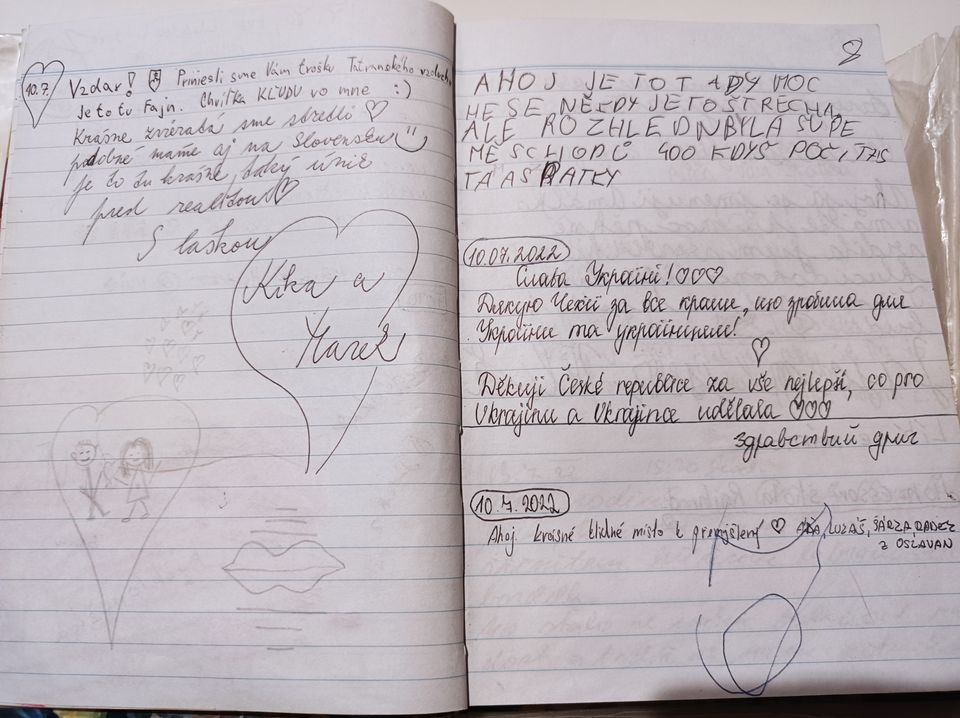 10.7. Vzdar! Priniesli sme Vám trošku Tatranského vzduchu
Je to tu Fajn. Chvíľka KĽUDU vo mne :)
Krásne zvieratá sme stretli ♡
podobné máme aj na Slovensku
je to tu krásne, taký únik
pred realitou ♡
S láskou
Kika a
Marek
8
AHOJ JE TO TADY MOC
HESE NĚKDY JE TO STRECHA
ALE ROZHLEDNBYLA SUPE
MĚ SCHODŮ 400 KDYŠ POČÍTÁS
TAAS PATKY
10.07.2022
Слава Україні! ♡♡♡
Дякую Чехії за все краще, що зробила для
України та українців!
♡
Děkuji České republice za vše nejlepší, co pro
Ukrajinu a Ukrajince udělala ♡♡♡
здравствий друг
10.7.2022
Ahoj krásné klidné místo k přemýšlení ♡ LUKÁŠ, ŠÁRZA, RADEZ
z OSLAVAN